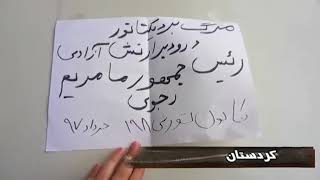 مرگ بر دیکتاتور
درود بر ارتش آزادی
رئیس جمهور ما مریم
رجوی
کانون شورشی ۱۹۸ خرداد ۹۷
کردستان